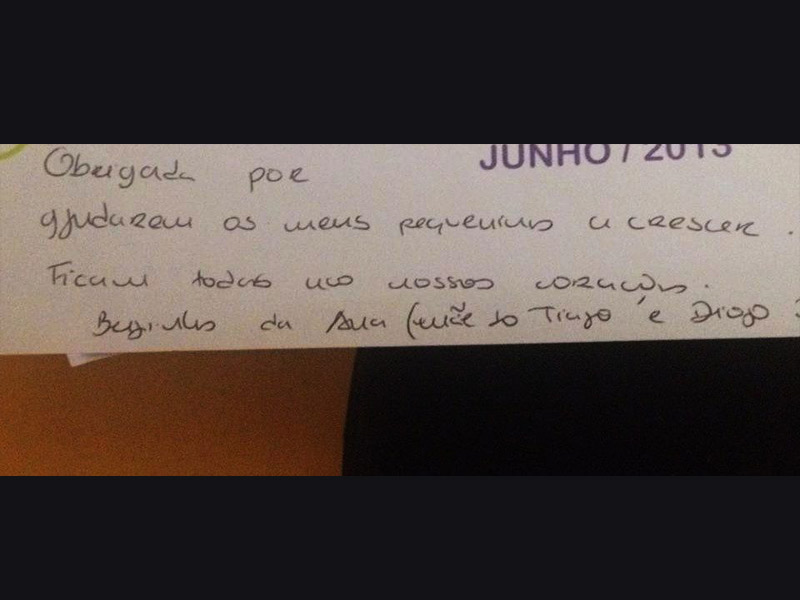 JUNHO / 2013
Obrigada por
ajudarem os meus pequeninos a crescer.
Ficam todas nos nossos corações.
Beijinhos da Ana (mãe do Tiago e Diogo